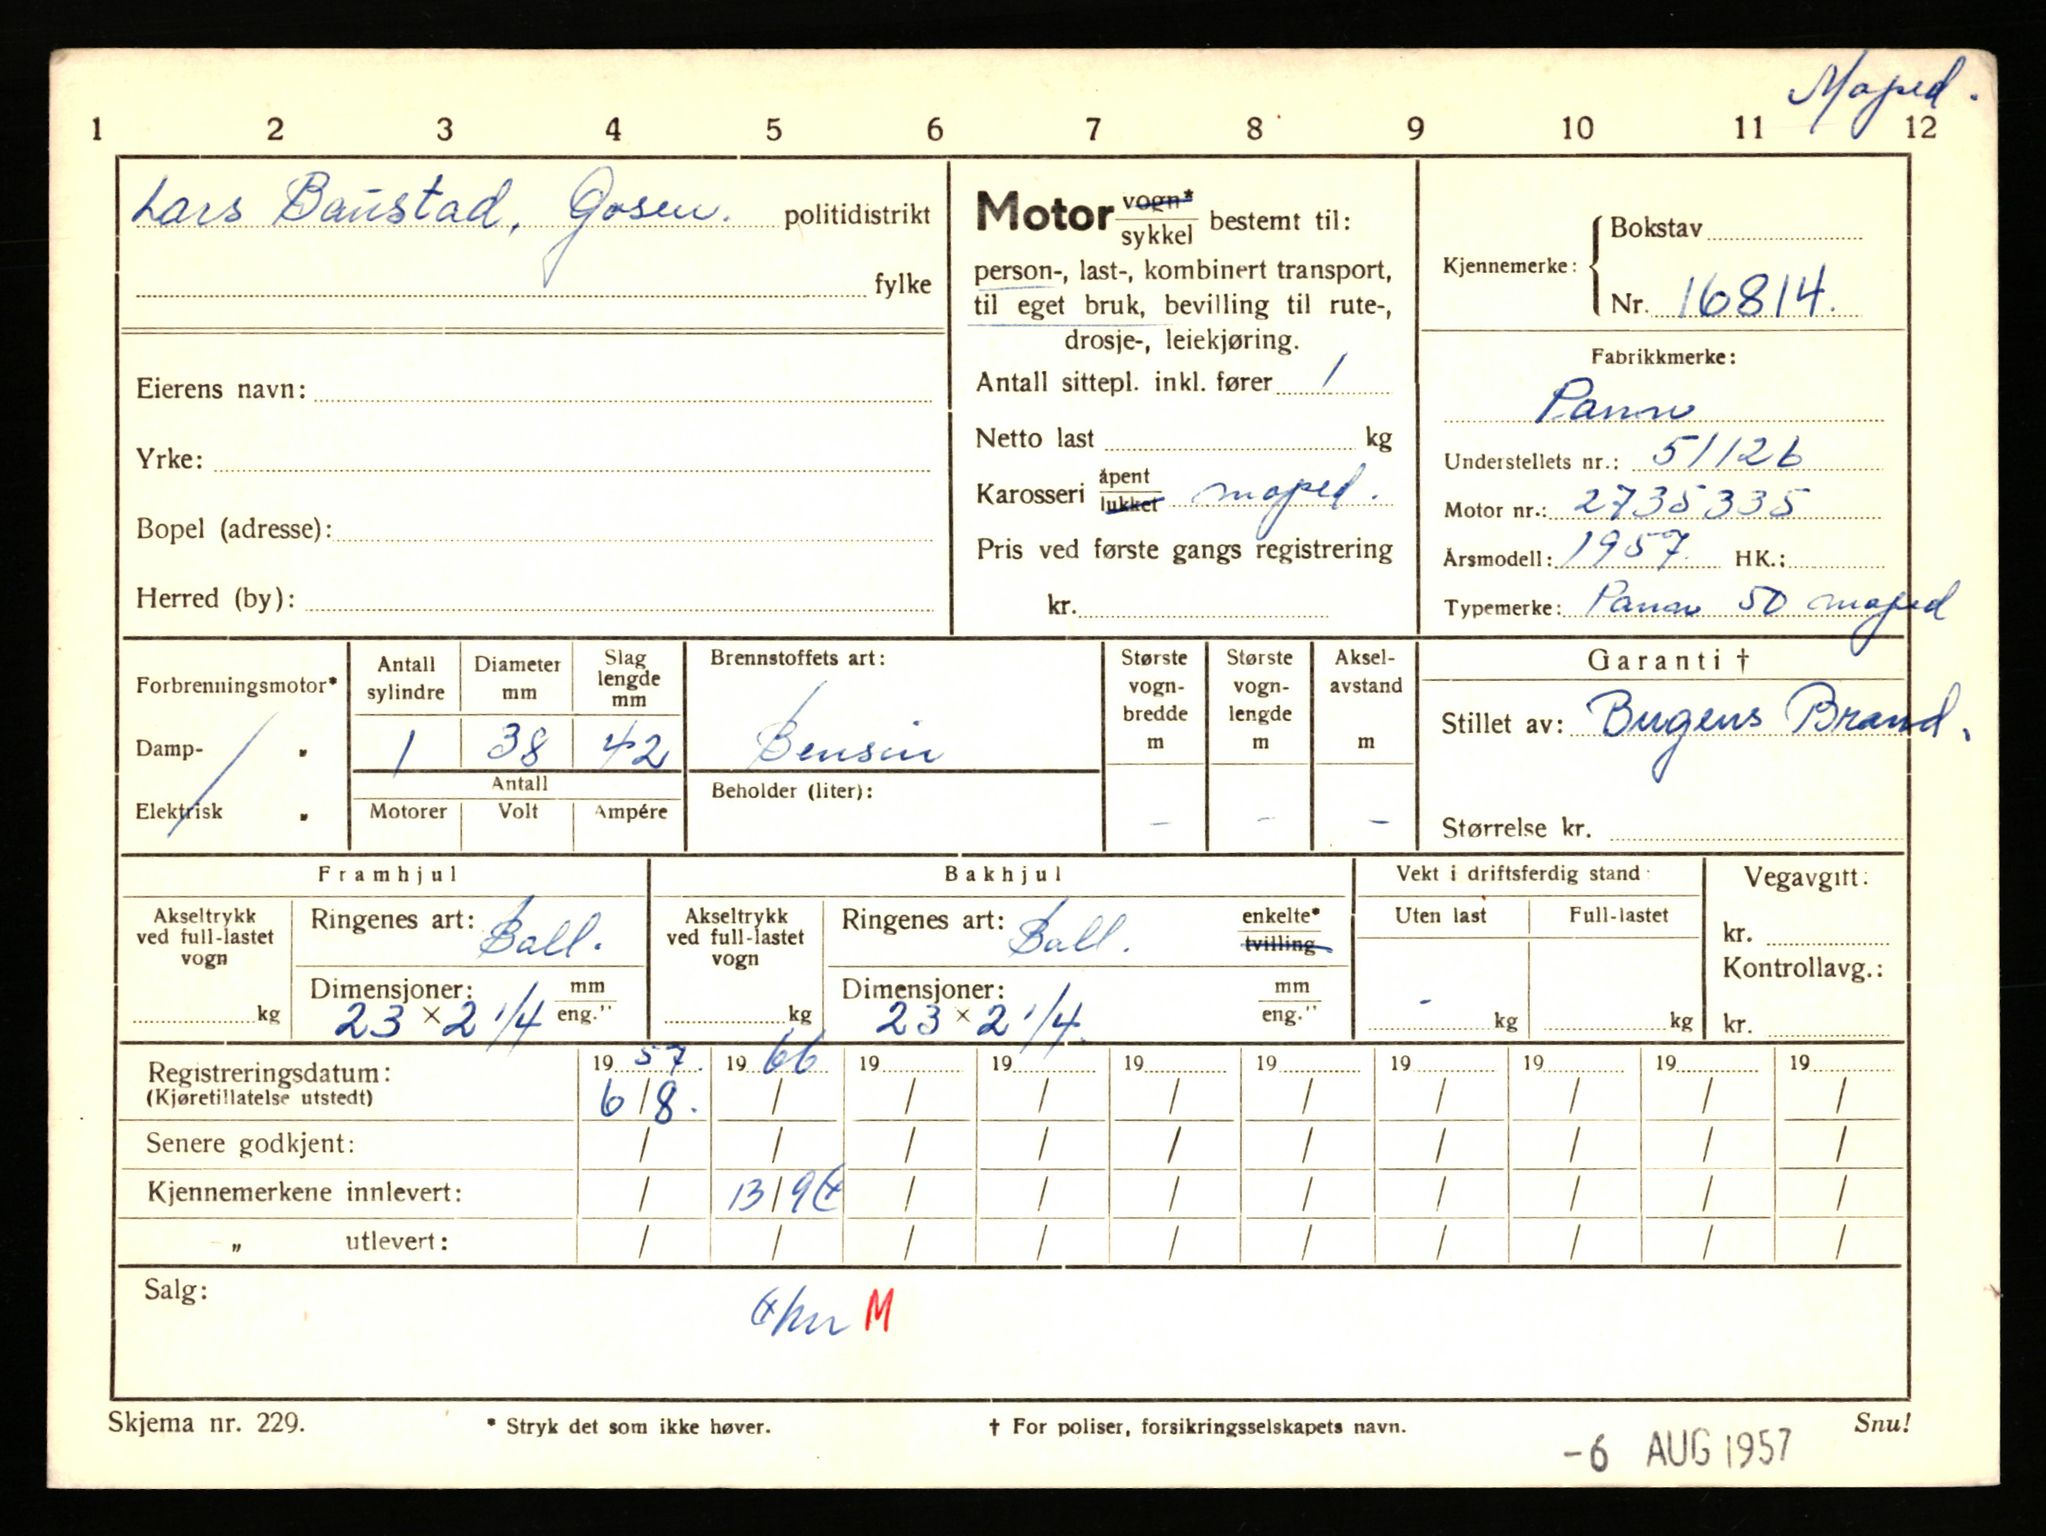 Moped.
1 2 3 4 5 6 7 8 9 10 11 12
Lars Baustad, Gosen. politidistrikt
fylke
Eierens navn:
Yrke:
Bopel (adresse):
Herred (by):
Motor vogn* sykkel bestemt til:
person-, last-, kombinert transport,
til eget bruk, bevilling til rute-,
drosje-, leiekjøring.
Antall sittepl. inkl. fører 1
Netto last kg
Karosseri åpent lukket moped.
Pris ved første gangs registrering
kr.
Kjennemerke: Bokstav
Nr. 16814.
Fabrikkmerke:
Pann
Understellets nr.: 51126
Motor nr.: 2735335
Årsmodell: 1957. HK.:
Typemerke: Pann 50 moped
Forbrenningsmotor*
Damp- "
Elektrisk "
Antall sylindre
Diameter mm
Slag lengde mm
1 38 42
Antall
Motorer Volt Ampére
Brennstoffets art:
Bensin
Beholder (liter):
Største vogn- bredde m
Største vogn- lengde m
Aksel- avstand m
- - -
Garanti †
Stillet av: Bugens Brand.
Størrelse kr.
Framhjul
Akseltrykk ved full-lastet vogn
kg
Ringenes art: Ball.
Dimensjoner: mm eng."
23 x 2 1/4
Bakhjul
Akseltrykk ved full-lastet vogn
kg
Ringenes art: Ball. enkelte* tvilling
Dimensjoner: mm eng."
23 x 2 1/4.
Vekt i driftsferdig stand:
Uten last Full-lastet
- kg kg
Vegavgift:
kr.
Kontrollavg.:
kr.
Registreringsdatum: 19 57. 19 66 19 19 19 19 19 19 19 19
(Kjøretillatelse utstedt) 6/8. / / / / / / / / /
Senere godkjent: / / / / / / / / / /
Kjennemerkene innlevert: / 13/9 / / / / / / / /
" utlevert: / / / / / / / / / /
Salg:
M
Skjema nr. 229. * Stryk det som ikke høver. † For poliser, forsikringsselskapets navn. Snu!
-6 AUG 1957